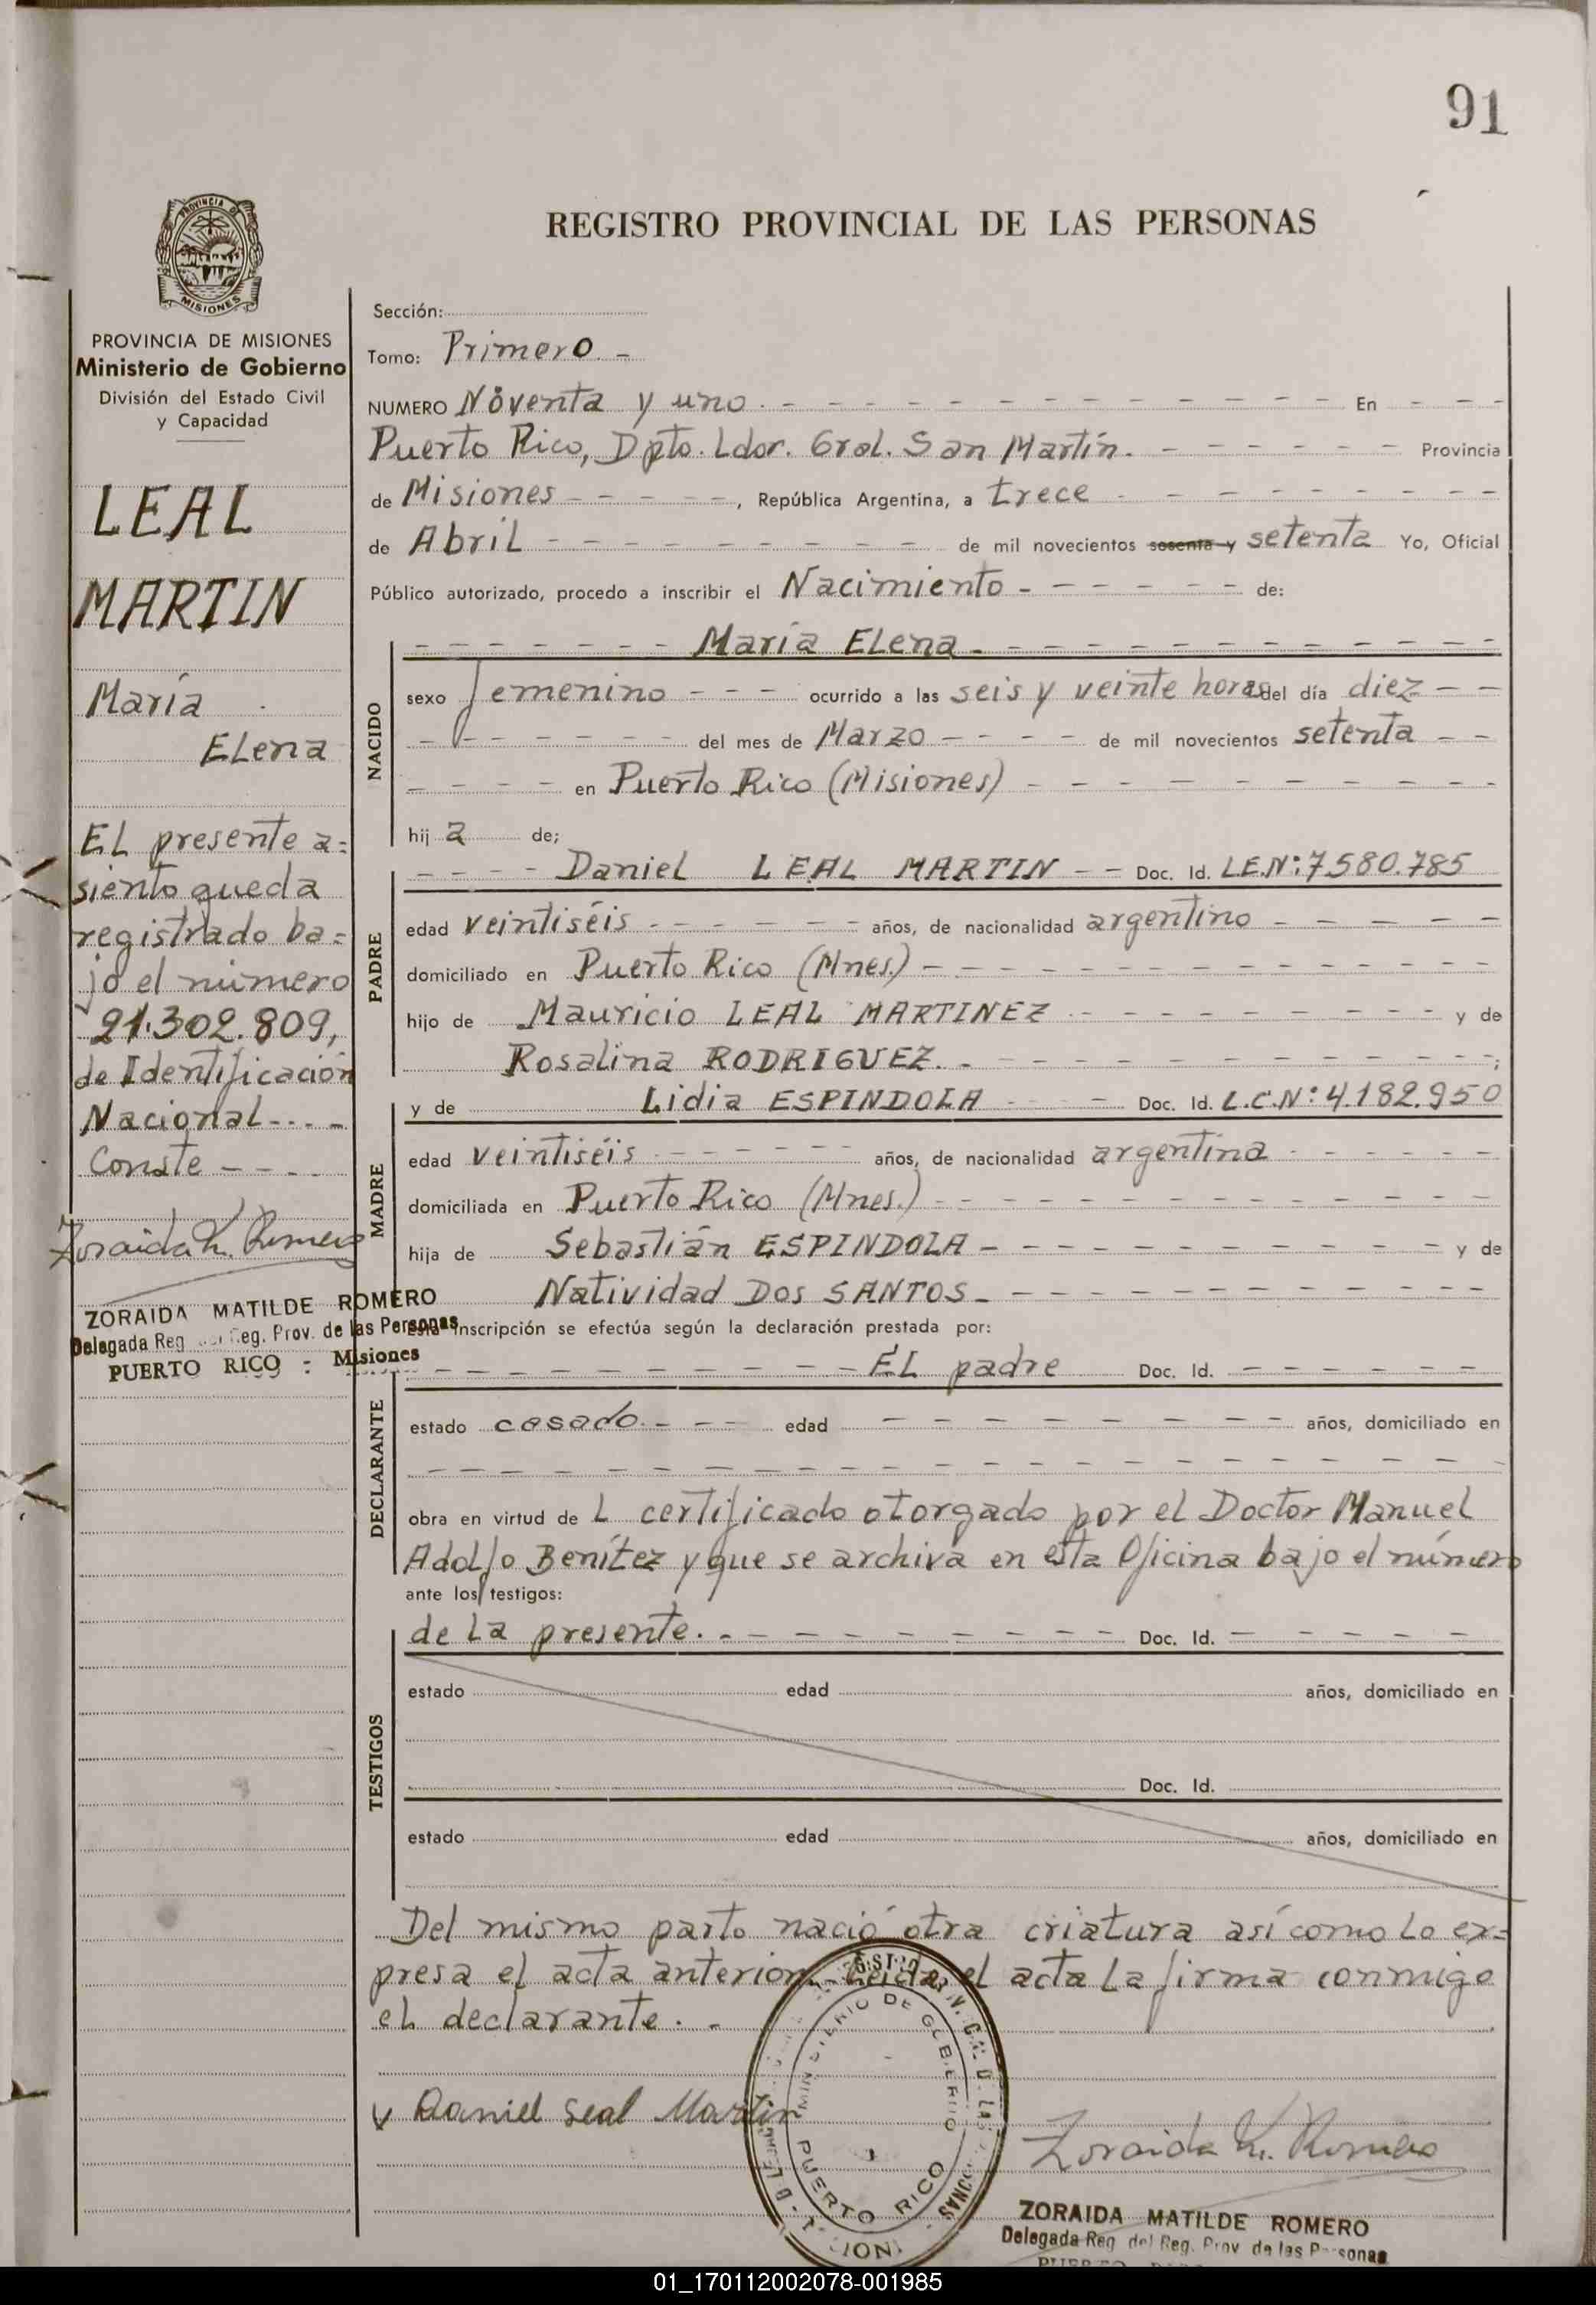 91
REGISTRO PROVINCIAL DE LAS PERSONAS
PROVINCIA DE MISIONES
PROVINCIA DE MISIONES
Ministerio de Gobierno
División del Estado Civil
y Capacidad
LEAL
MARTIN
María
Elena
El presente a=
siento queda
registrado ba=
jo el número
21.302.809,
de Identificación
Nacional----
Conste - - - -
Zoraida M. Romero
ZORAIDA MATILDE ROMERO
Delegada Reg del Reg. Prov. de las Personas
PUERTO RICO : Misiones
Sección:
Tomo: Primero. -
NUMERO Noventa y uno. - - - - - - - - - - - En - - -
Puerto Rico, Dpto. Ldor. Gral. San Martín. - - - - - - Provincia
de Misiones - - - - -, República Argentina, a trece - - - - - - - -
de Abril - - - - - - - - - de mil novecientos sesenta y setenta Yo, Oficial
Público autorizado, procedo a inscribir el Nacimiento - - - - - - de:
- - - - - - - María Elena. - - - - - - - - - - - -
NACIDO
sexo femenino - - - ocurrido a las seis y veinte horas del día diez - -
- - - - - - - del mes de Marzo - - - - de mil novecientos setenta - -
- - - - en Puerto Rico (Misiones) - - - - - - - - - - -
hij a de;
- - - - Daniel LEAL MARTIN - - Doc. Id. L.E.N: 7580.785
PADRE
edad veintiséis - - - - - - años, de nacionalidad argentino - - - - -
domiciliado en Puerto Rico (Mnes.) - - - - - - - - - - - - -
hijo de Mauricio LEAL MARTINEZ - - - - - - - - - y de
Rosalina RODRIGUEZ. - - - - - - - - - - - - ;
y de Lidia ESPINDOLA - - - - Doc. Id. L.C.N: 4.182.950
MADRE
edad veintiséis - - - - - - años, de nacionalidad argentina - - - - -
domiciliada en Puerto Rico (Mnes.) - - - - - - - - - - - - -
hija de Sebastián ESPINDOLA - - - - - - - - - - y de
Natividad DOS SANTOS - - - - - - - - - - - -
Esta inscripción se efectúa según la declaración prestada por:
- - - - - - - - - El padre Doc. Id. - - - - - -
DECLARANTE
estado casado. - - - edad - - - - - - - - - años, domiciliado en
- - - - - - - - - - - - - - - - - - - - - - - -
obra en virtud de l certificado otorgado por el Doctor Manuel
Adolfo Benítez y que se archiva en esta Oficina bajo el número
ante los testigos:
de la presente. - - - - - - - - - - Doc. Id. - - - - -
TESTIGOS
estado edad años, domiciliado en
Doc. Id.
estado edad años, domiciliado en
Del mismo parto nació otra criatura así como lo ex=
presa el acta anterior. Leída el acta la firma conmigo
el declarante. -
MINISTERIO DE GOBIERNO
PUERTO RICO
Daniel Leal Martin
Zoraida M. Romero
ZORAIDA MATILDE ROMERO
Delegada Reg del Reg. Prov de las Personas
01_170112002078-001985